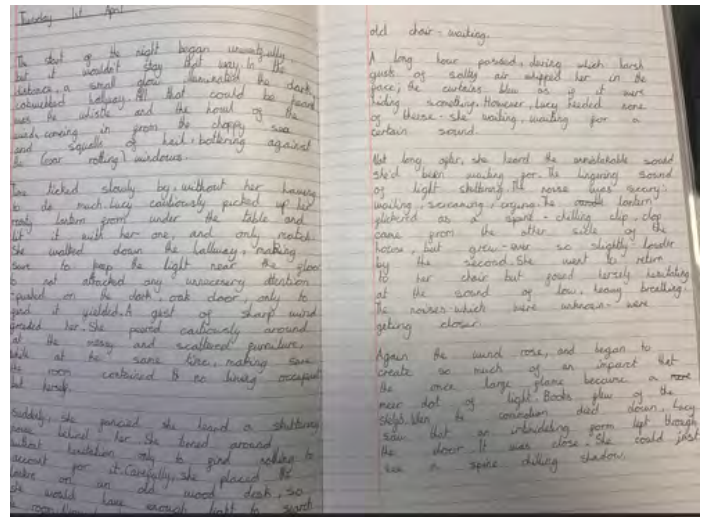 Tuesday 1st April
The start of the night began uneventfully,
but it wouldn't stay that way. In the
distance, a small glow illuminated the dark,
cobwebbed hallway. All that could be heard
was the whistle and the howl of the
wind, coming in from the choppy sea
and squalls of hail, battering against
the (over rotting) windows.
Time ticked slowly by, without her having
to do much. Lucy cautiously picked up her
rusty lantern from under the table and
lit it with her one, and only match.
She walked down the hallway, making
sure to keep the light near the floor
to not attracted any unnecessary attention
pushed on the dark, oak door, only to
find it yielded. A gust of sharp wind
greeted her. She peered cautiously around
at the messy and scattered furniture,
while at the same time, making sure
the room contained no living occupant
but herself.
Suddenly, she fancied she heard a shuttering
noise behind her. She turned around
without hesitation only to find nothing to
account for it. Carefully, she placed the
lantern on an old wood desk, so
she would have enough light to search
old chair - waiting.
A long hour passed, during which harsh
gusts of salty air whipped her in the
face; the curtains blew as if it were
hiding something. However, Lucy needed none
of these - she waiting, waiting for a
certain sound.
Not long after, she heard the unmistakable sound
she'd been waiting for. The lingering sound
of light shuttering. The noise was seery:
wailing, screaming, crying. The lantern
flickered as a spine - chilling clip, clop
came from the other side of the
house, but grew - ever so slightly louder
by the second. She went to return
to her chair but found hersely hesitating
at the sound of low, heavy breathing.
The noises - which were unknown - were
getting closer.
Again the wind rose, and began to
create so much of an impact that
the once large flame because a
mear dot of light. Books flew of the
shelfs. When the comotion died down, Lucy
saw that an unbidding form lept through
the door. It was close. She could just
see a spine chilling shadow.